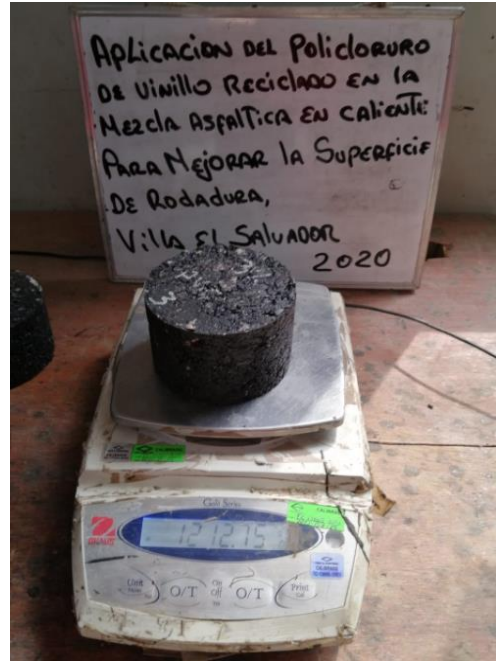 APLICACION DEL POLICLORURO
DE VINILLO RECICLADO EN LA
MEZCLA ASFALTICA EN CALIENTE
PARA MEJORAR LA SUPERFICIE
DE RODADURA,
VILLA EL SALVADOR
2020
OHAUS
1212.15
O/T
On
Off
O/T
Print